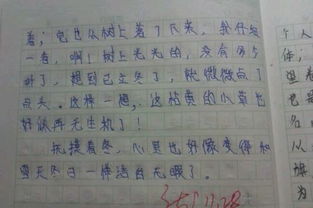 着；它也从树上落了下来，我仔细
一看，啊！树上光光的，没有多少
叶了，想到已立冬了，就微微点了
点头。这样一想，这枯黄的小草也
好似再无生机了！
抚摸着冬，心里也好像变得和
冬日一样洁白无暇了。
个人
体；
也
名
从
旗
为